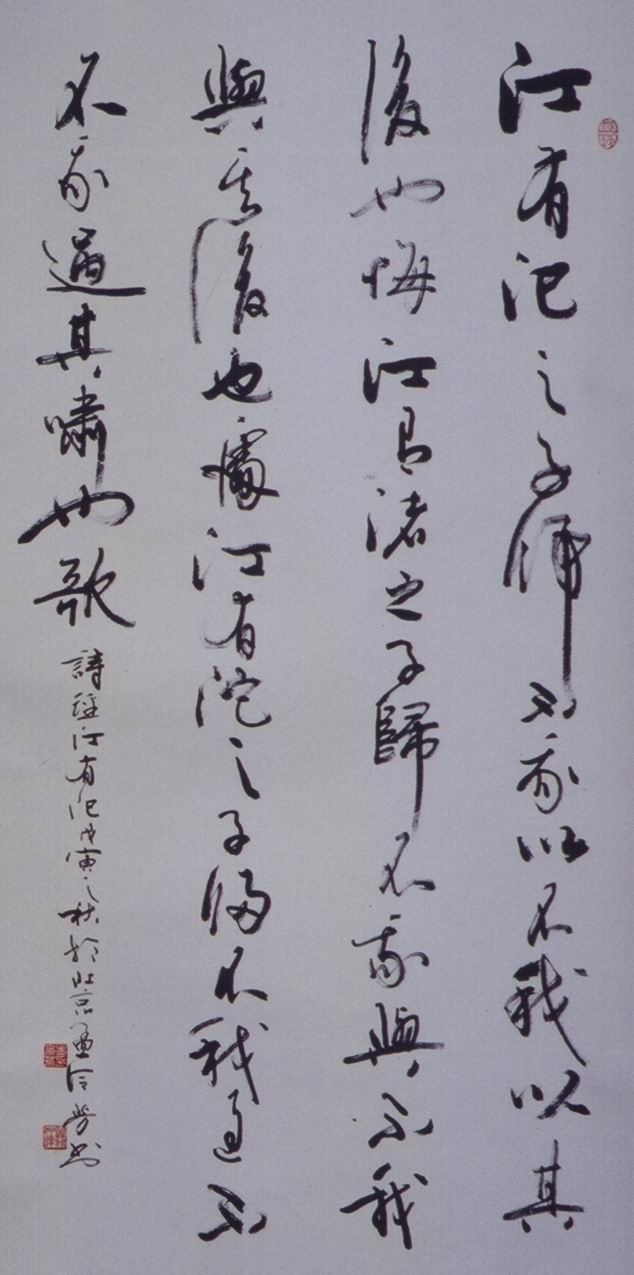 江有汜之子歸不我以不我以其
後也悔江有渚之子歸不我與不我
與其後也處江有沱之子歸不我過不
我過其嘯也歌
詩經江有汜戊寅之秋於北京孟 書